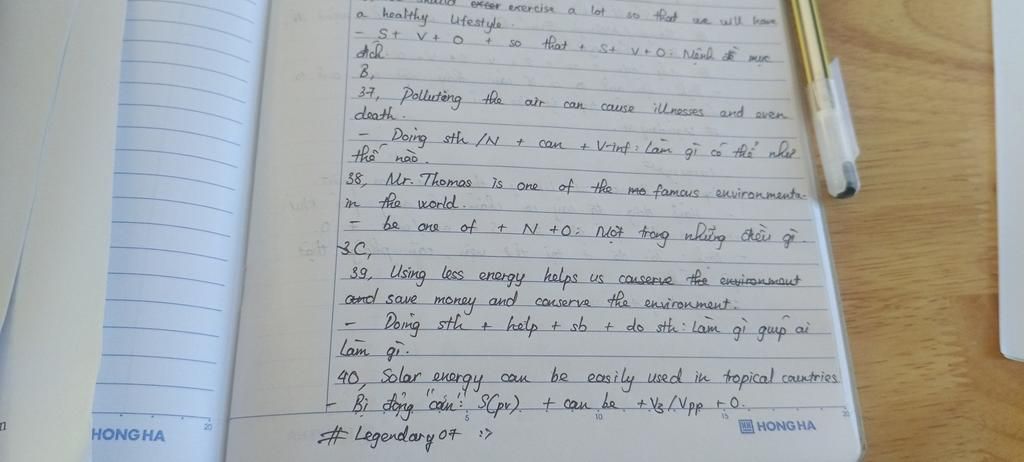 should exercise a lot so that we will have
a healthy lifestyle.
- S+ V + O + so that + S+ V+O: Mệnh đề mục
đích
B,
37, Polluting the air can cause illnesses and even
death.
- Doing sth /N + can + V-inf: làm gì có thể như
thế nào.
38, Mr. Thomas is one of the mo famous environmenta-
in the world.
- be one of + N +O: Một trong những điều gì.
3.C,
39, Using less energy helps us conserve the environment
and save money and conserve the environment.
- Doing sth + help + sb + do sth: làm gì giup ai
làm gì.
40, Solar energy can be easily used in tropical countries
- Bị động "can": S(pv) + can be + V3/Vpp + O.
# Legendary 07 :>
20 HONG HA 5 10 15 HONG HA 20